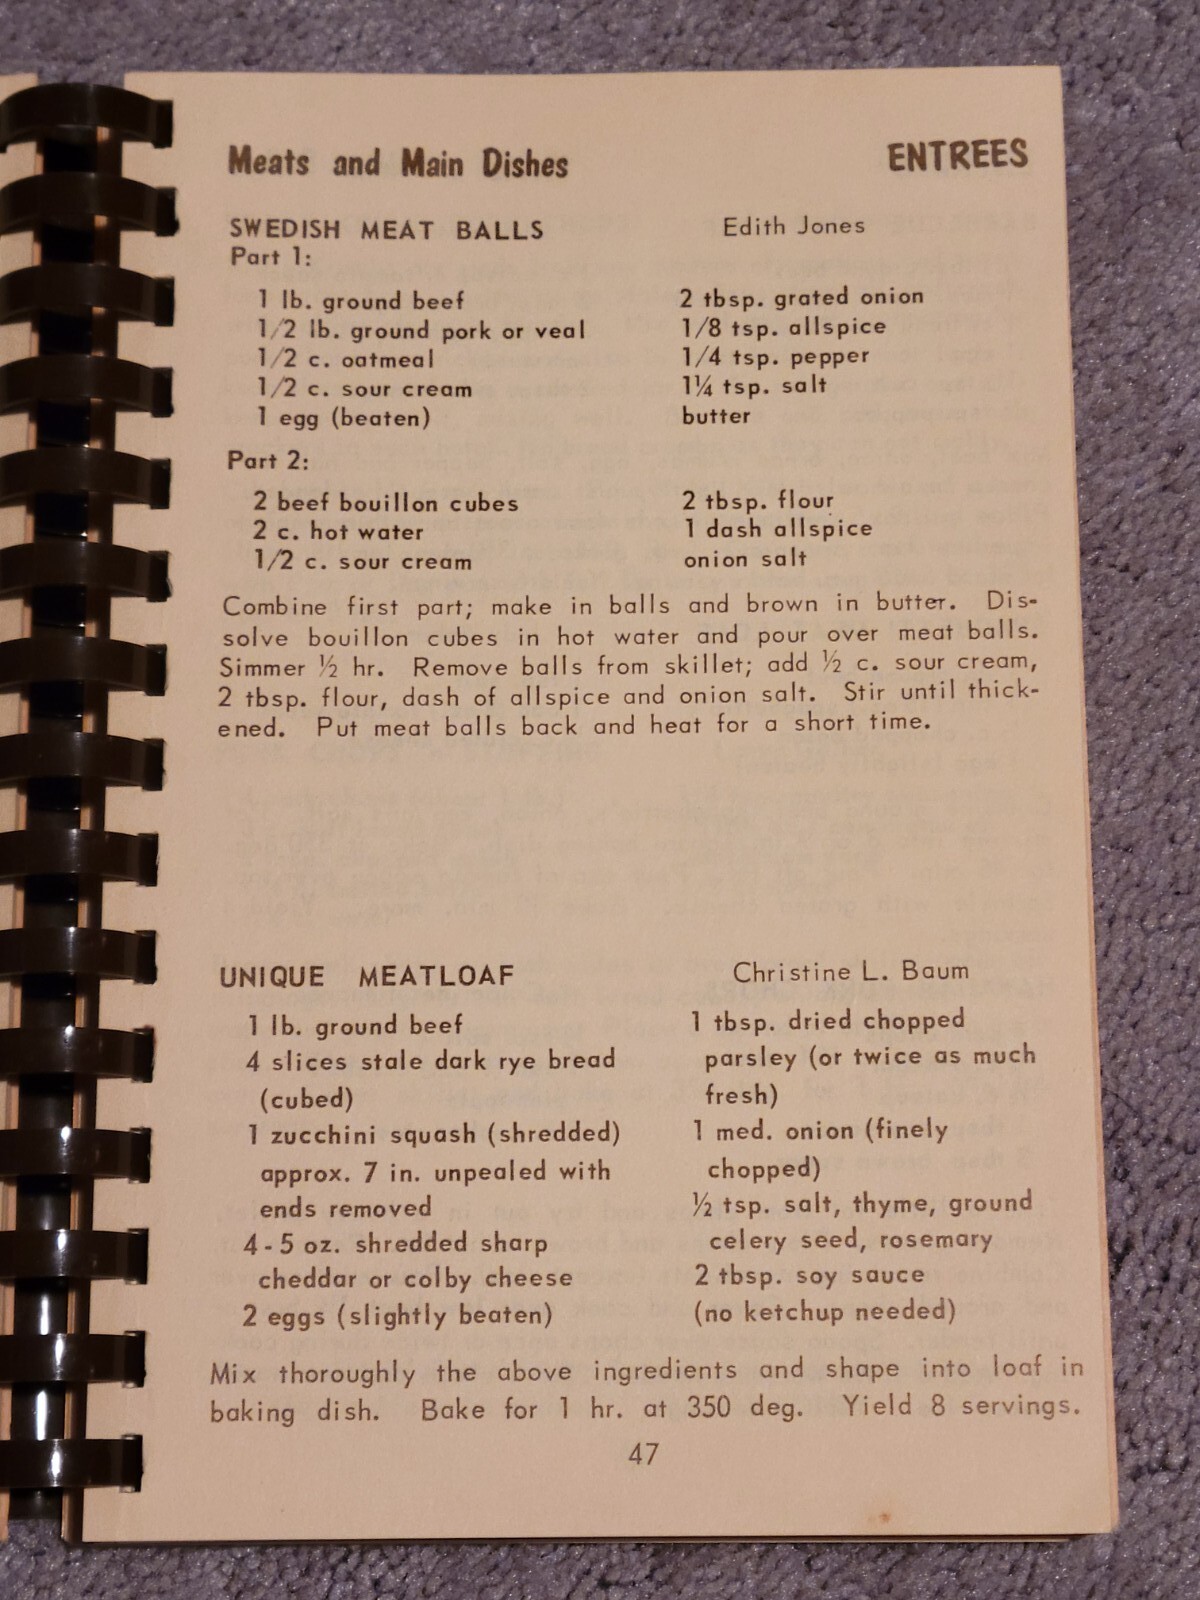 Meats and Main Dishes ENTREES
SWEDISH MEAT BALLS Edith Jones
Part 1:
1 lb. ground beef
1/2 lb. ground pork or veal
1/2 c. oatmeal
1/2 c. sour cream
1 egg (beaten)
2 tbsp. grated onion
1/8 tsp. allspice
1/4 tsp. pepper
1¼ tsp. salt
butter
Part 2:
2 beef bouillon cubes
2 c. hot water
1/2 c. sour cream
2 tbsp. flour
1 dash allspice
onion salt
Combine first part; make in balls and brown in butter. Dis-
solve bouillon cubes in hot water and pour over meat balls.
Simmer ½ hr. Remove balls from skillet; add ½ c. sour cream,
2 tbsp. flour, dash of allspice and onion salt. Stir until thick-
ened. Put meat balls back and heat for a short time.
UNIQUE MEATLOAF Christine L. Baum
1 lb. ground beef
4 slices stale dark rye bread
(cubed)
1 zucchini squash (shredded)
approx. 7 in. unpealed with
ends removed
4-5 oz. shredded sharp
cheddar or colby cheese
2 eggs (slightly beaten)
1 tbsp. dried chopped
parsley (or twice as much
fresh)
1 med. onion (finely
chopped)
½ tsp. salt, thyme, ground
celery seed, rosemary
2 tbsp. soy sauce
(no ketchup needed)
Mix thoroughly the above ingredients and shape into loaf in
baking dish. Bake for 1 hr. at 350 deg. Yield 8 servings.
47